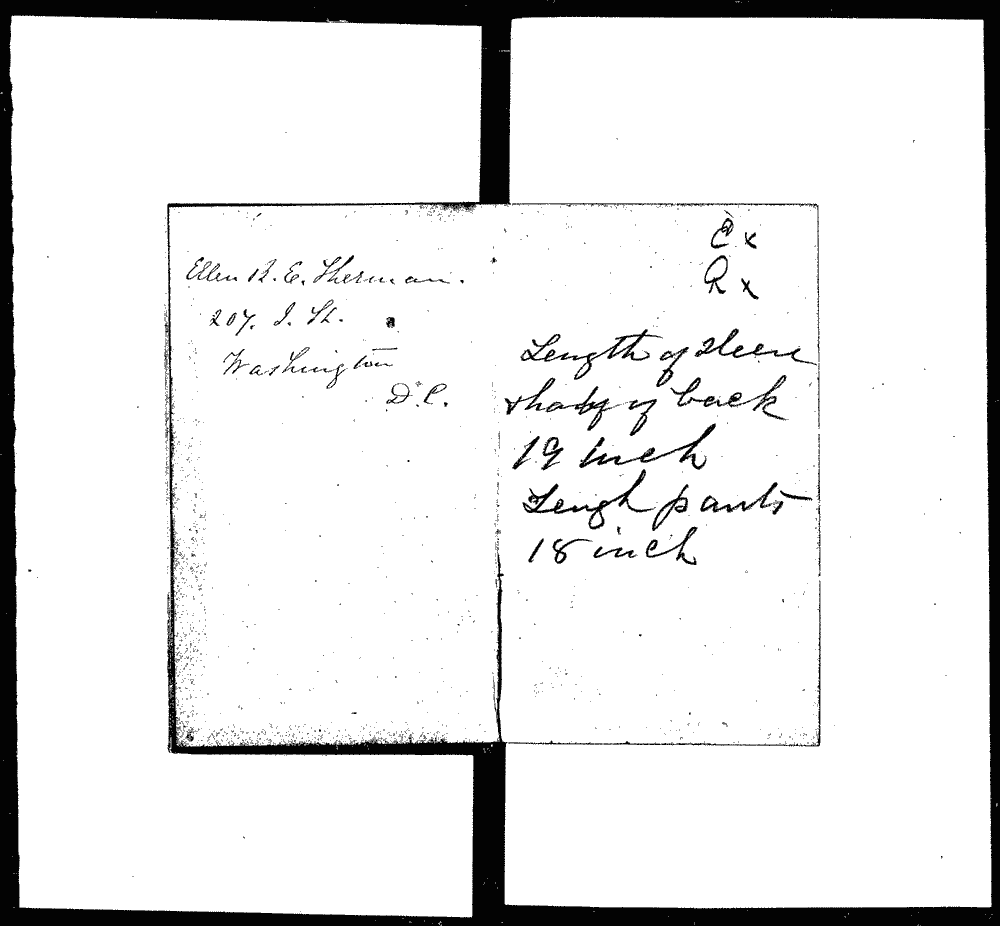 Ellen B. E. Sherman.
207. I. St.
Washington
D.C.
E x
R x
Length of sleeve
& half of back
19 inch
Lengh pants
18 inch